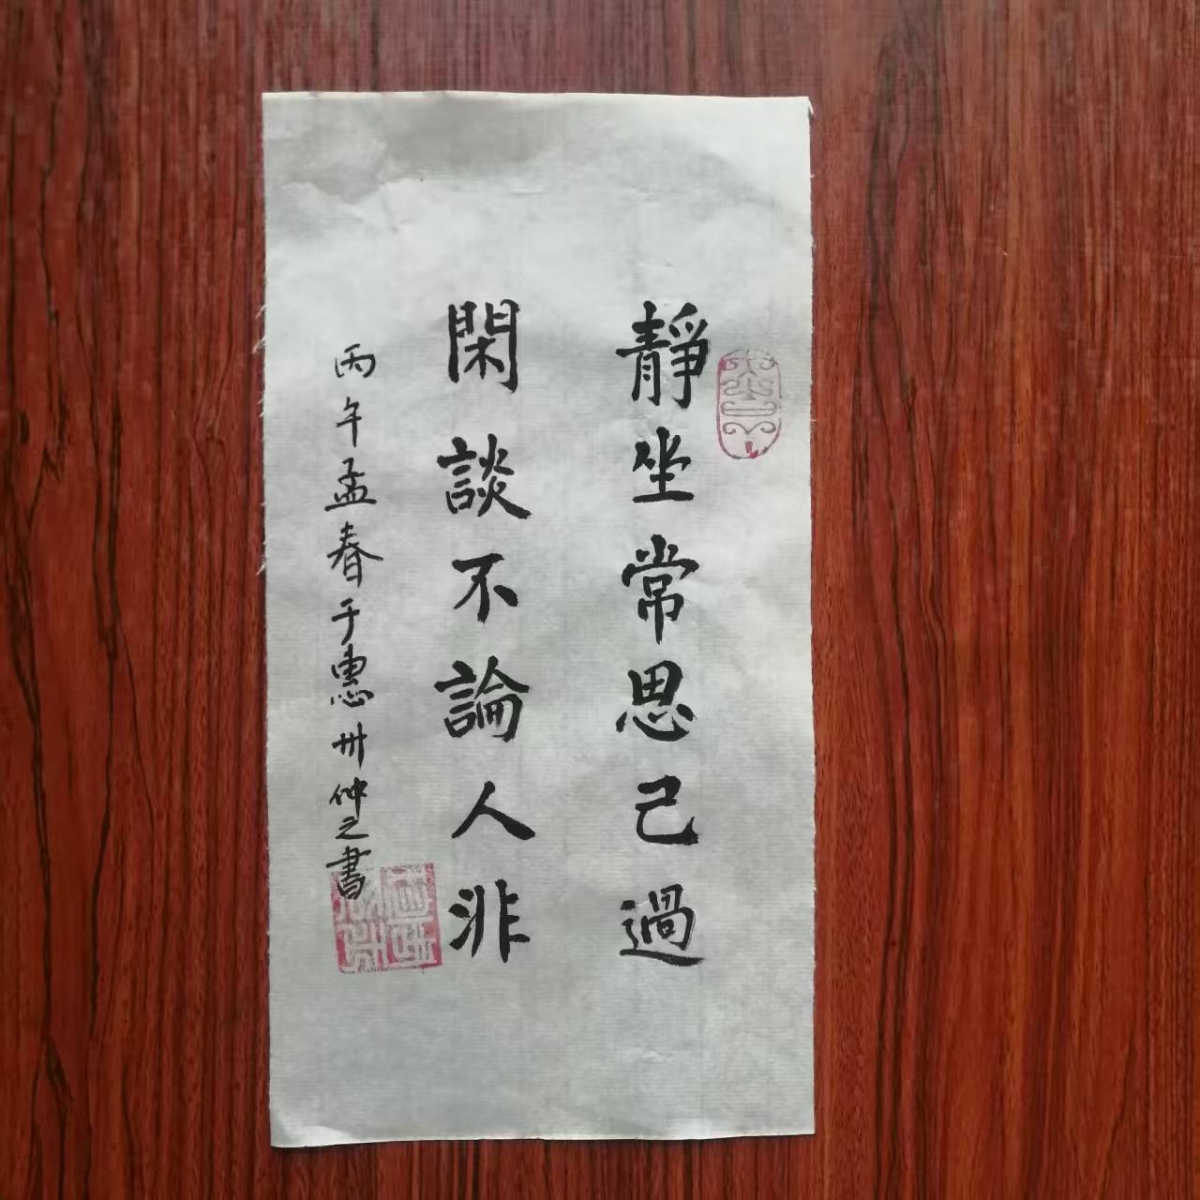 靜坐常思己過
閑談不論人非
丙午孟春于惠州仲之書